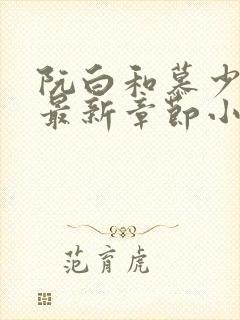 阮白和慕少
最新章节小
范育虎